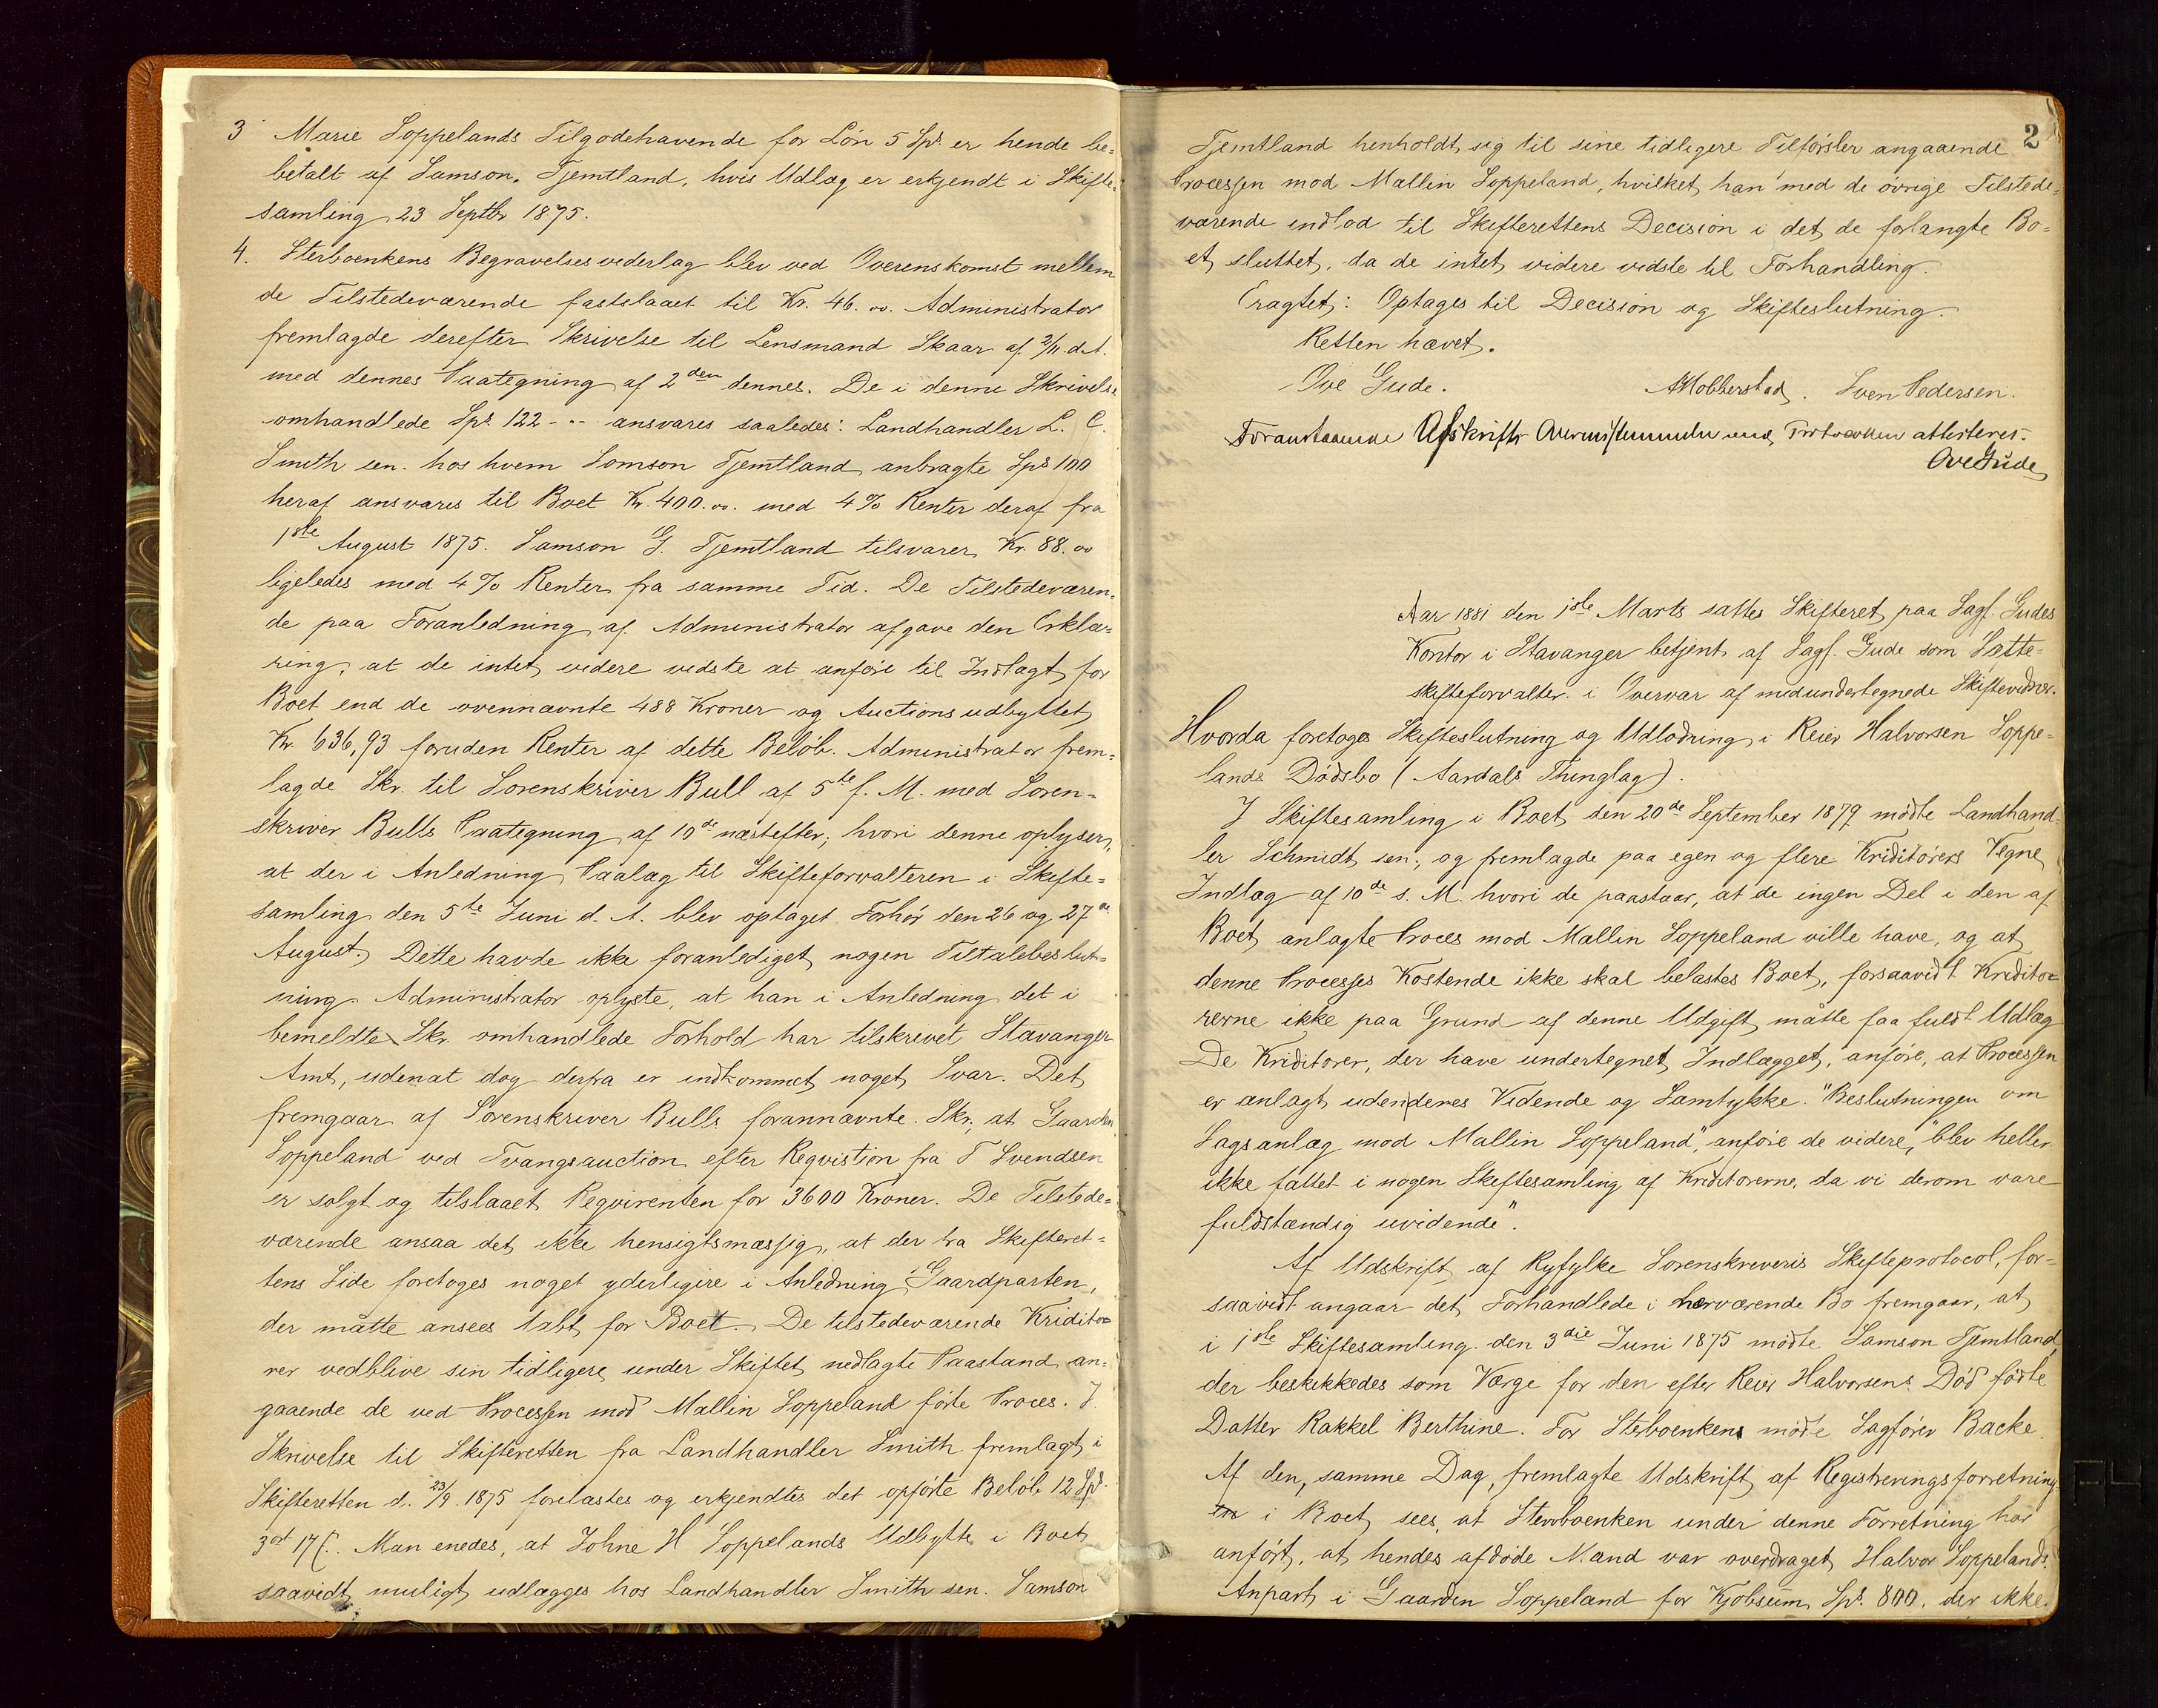 3 Marie Soppelands Tilgodehavende for Løn 5 Spd. er hende be-
betalt af Samson. Tjemtland, hvis Udlæg er erkjendt i Skifte-
samling 23 Septbr 1875.
4. Sterboenkens Begravelsesvederlag blev ved Overenskomst mellem
de Tilstedeværende fastslaaet til Kr. 46.00. Administrator
fremlagde derefter Skrivelse til Lensmand Skaar af 2/11 d.A.
med dennes Paategning af 2den dennes. De i denne Skrivelse
omhandlede Spd. 122 - .. ansvares saaledes: Landhandler L. C.
Smith sen. hos hvem Samson Tjemtland anbragte Spd. 100
heraf ansvares til Boet Kr. 400.00. med 4% Renter deraf fra
1ste August 1875. Samson G. Tjemtland tilsvarer Kr. 88.00
ligeledes med 4% Renter fra samme Tid. De Tilstedeværen-
de paa Foranledning af Administrator afgave den Erklæ-
ring, at de intet videre vidste at anføre til Indtægt for
Boet end de ovennævnte 488 Kroner og Auctionsudbyttet
Kr. 636,93 foruden Renter af dette Beløb. Administrator frem-
lagde Skr. til Sorenskriver Bull af 5te f. M. med Soren-
skriver Bulls Paategning af 10de næstefter; hvori denne oplyser,
at der i Anledning Paalæg til Skifteforvalteren i Skifte-
samling den 5te Juni d. A. blev optaget Forhør den 26 og 27de
August. Dette havde ikke foranlediget nogen Tiltalebeslut-
ning. Administrator oplyste, at han i Anledning det i
bemeldte Skr. omhandlede Forhold har tilskrevet Stavanger
Amt, udenat dog derfra er indkommet noget Svar. Det
fremgaar af Sorenskriver Bulls forannævnte Skr., at Gaarden
Soppeland ved Tvangsauction efter Reqvistion fra T Svendsen
er solgt og tilslaaet Reqvirenten for 3600 Kroner. De Tilstede-
værende ansaa det ikke hensigtsmæssig, at der fra Skifteret-
tens Side foretoges noget yderligire i Anledning Gaardparten,
der måtte ansees tabt for Boet. De tilstedeværende Kridito-
rer vedblive sin tidligere under Skiftet nedlagte Paastand an-
gaaende de ved Processen mod Mallin Soppeland førte Proces. I
Skrivelse til Skifteretten fra Landhandler Smith fremlagt i
Skifteretten d. 23/9. 1875 forelæstes og erkjendtes det opførte Beløb 12 Spd.
3 ort 17 ſ. Man enedes, at Johne H Soppelands Udbytte i Boet
saavidt muligt udlægges hos Landhandler Smith sen. Samson
2
Tjemtland henholdt sig til sine tidligere Tilførsler angaaende
Processen mod Mallin Soppeland, hvilket han med de øvrige Tilstede-
værende indlod til Skifterettens Decision i det de forlangte Bo-
et sluttet, da de intet videre vidste til Forhandling.
Eragtet: Optages til Decision og Skifteslutning.
Retten hævet.
Ove Gude. A Mobberstad. Sven Pedersen.
Foranstaaende Afskrifts Overensstemmelse med Protocollen attesteres.
Ove Gude
Aar 1881 den 1ste Marts sattes Skifteret paa Sagf. Gudes
Kontor i Stavanger betjent af Sagf. Gude som Sætte-
skifteforvalter i Overvær af medundertegnede Skiftevidner.
Hvorda foretoges Skifteslutning og Udlodning i Reier Halvorsen Soppe-
lands Dødsbo (Aardals Thinglag).
I Skiftesamling i Boet den 20de September 1879 mødte Landhand-
ler Schmidt sen., og fremlagde paa egen og flere Kriditørers Vegne
Indlæg af 10de s. M. hvori de paastaar, at de ingen Del i den af
Boet anlagte Proces mod Mallin Soppeland ville have, og at
denne Processes Kostende ikke skal belastes Boet, forsaavidt Kredito-
rerne ikke paa Grund af denne Udgift måtte faa fuldt Udlæg
De Kriditorer, der have undertegnet Indlægget, anføre, at Processen
er anlagt uden deres Vidende og Samtykke. "Beslutningen om
Sagsanlæg mod Mallin Soppeland", anføre de videre, "blev heller
ikke fattet i nogen Skiftesamling af Kreditorerne, da vi derom vare
fuldstændig uvidende".
Af Udskrift af Ryfylke Sorenskriveris Skifteprotocol, for-
saavidt angaar det Forhandlede i nærværende Bo fremgaar, at
i 1ste Skiftesamling den 3die Juni 1875 mødte Samson Tjemtland,
der beskikkedes som Værge for den efter Reier Halvorsens Død fødte
Datter Rakkel Berthine. For Sterboenken mødte Sagfører Backe.
Af den, samme Dag, fremlagte Udskrift af Registreringsforretning-
en i Boet sees, at Sterboenken under denne Forretning har
anført, at hendes afdøde Mand var overdraget Halvor Soppelands
Anpart i Gaarden Soppeland for Kjøbsum Spd. 800, der ikke